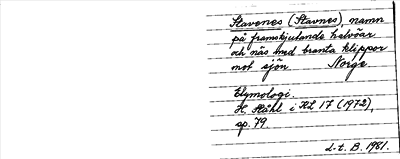 Stavenes (Stavnes), namn
på framskjutande halvöar
och näs med branta klippor
mot sjön Norge
Etymologi.
H. Ståhl i KL 17 (1972),
sp. 79.
L-t. B. 1981.